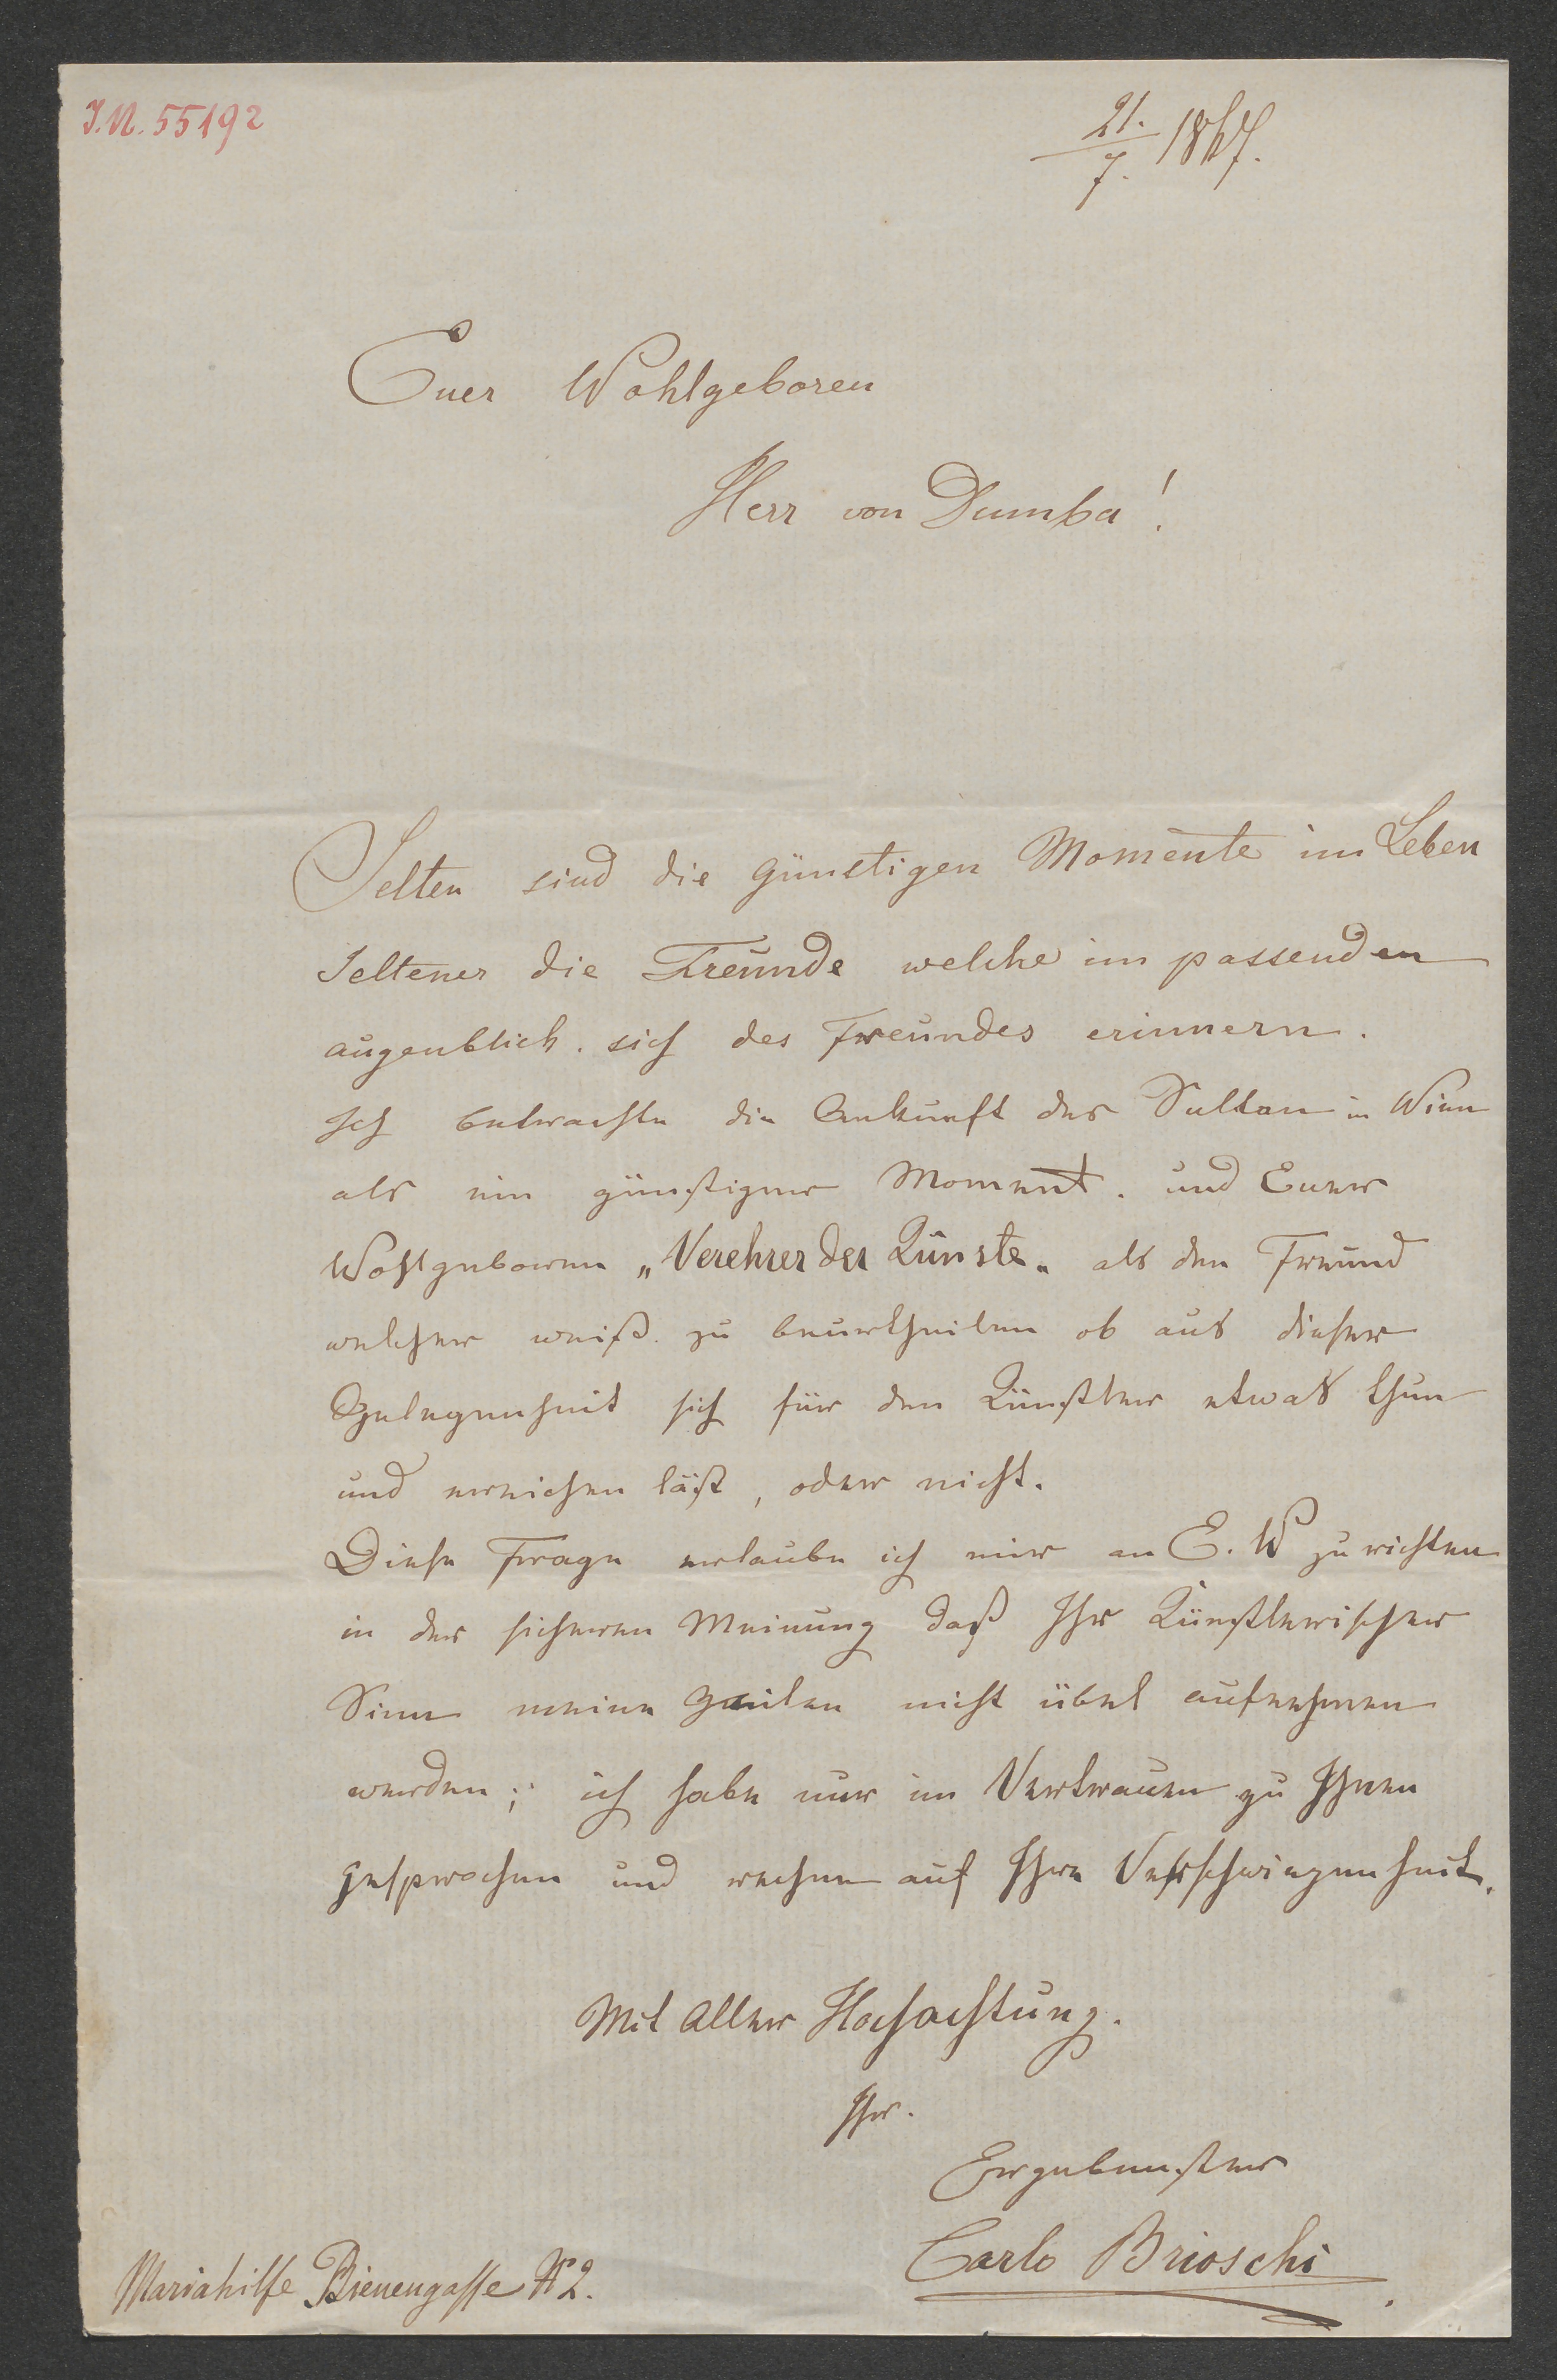 I.N. 55192
21./7. 1867.
Euer Wohlgeboren
Herr von Dumba!
Selten sind die günstigen Momente im Leben
Seltener die Freunde welche im passenden
augenblick. sich des Freundes erinnern.
Ich betrachte die Ankunft des Sultan in Wien
als ein günstiger Moment. und Euer
Wohlgeboren „Verehrer der Künste„ als den Freund
welcher weiß zu beurtheilen ob aus dieser
Gelegenheit sich für den Künstler etwas thun
und erreichen läßt, oder nicht.
Diese Frage erlaube ich mir an E. W zu richten
in der sicheren Meinung daß Ihr Künstlerischer
Sinn meine Zeilen nicht übel aufnehmen
werden; ich habe nur im Vertrauen zu Ihnen
gesprochen und rechne auf Ihre Verschwiegenheit.
Mit aller Hochachtung.
Ihr.
Ergebenster
Carlo Brioschi
Mariahilfe Bienengasse No 2.